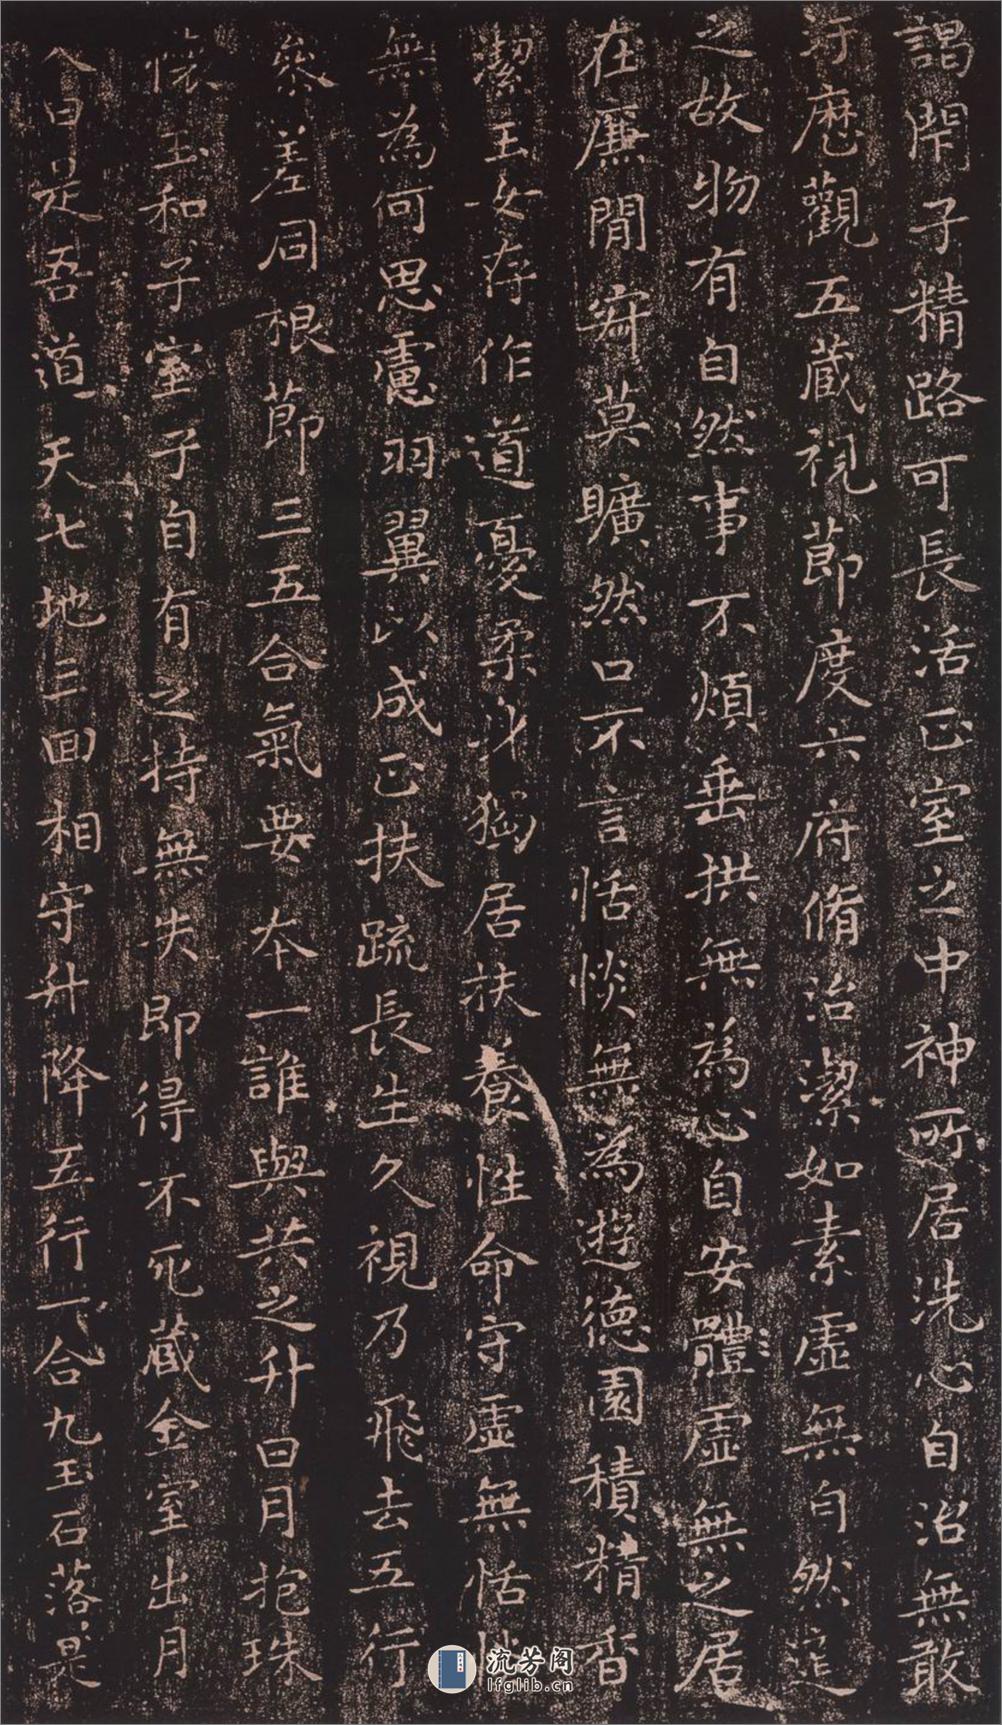 謁闭子精路可長活正室之中神所居洗心自治無敢
汙歷觀五藏視節度六府脩治潔如素虛無自然道
之故物有自然事不煩垂拱無為心自安體虛無之居
在廉間寂莫曠然口不言恬惔無為遊德園積精香
潔玉女存作道憂柔身獨居扶養性命守虛無恬惔
無為何思慮羽翼以成正扶疏長生久視乃飛去五行
參差同根節三五合氣要本一誰與共之升日月抱珠
懷玉和子室子自有之持無失即得不死藏金室出月
入日是吾道天七地三回相守升降五行一合九玉石落是
流芳阁
lfglib.cn